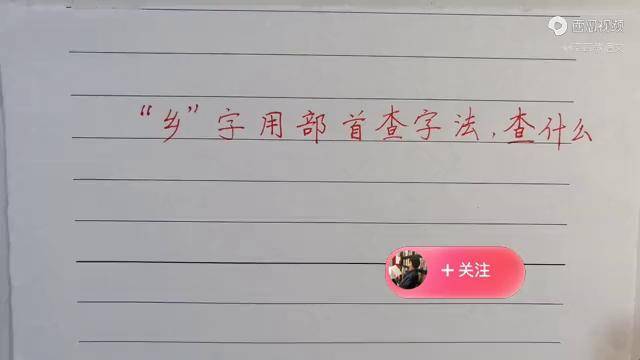 西瓜视频
“乡”字用部首查字法，查什么
+关注